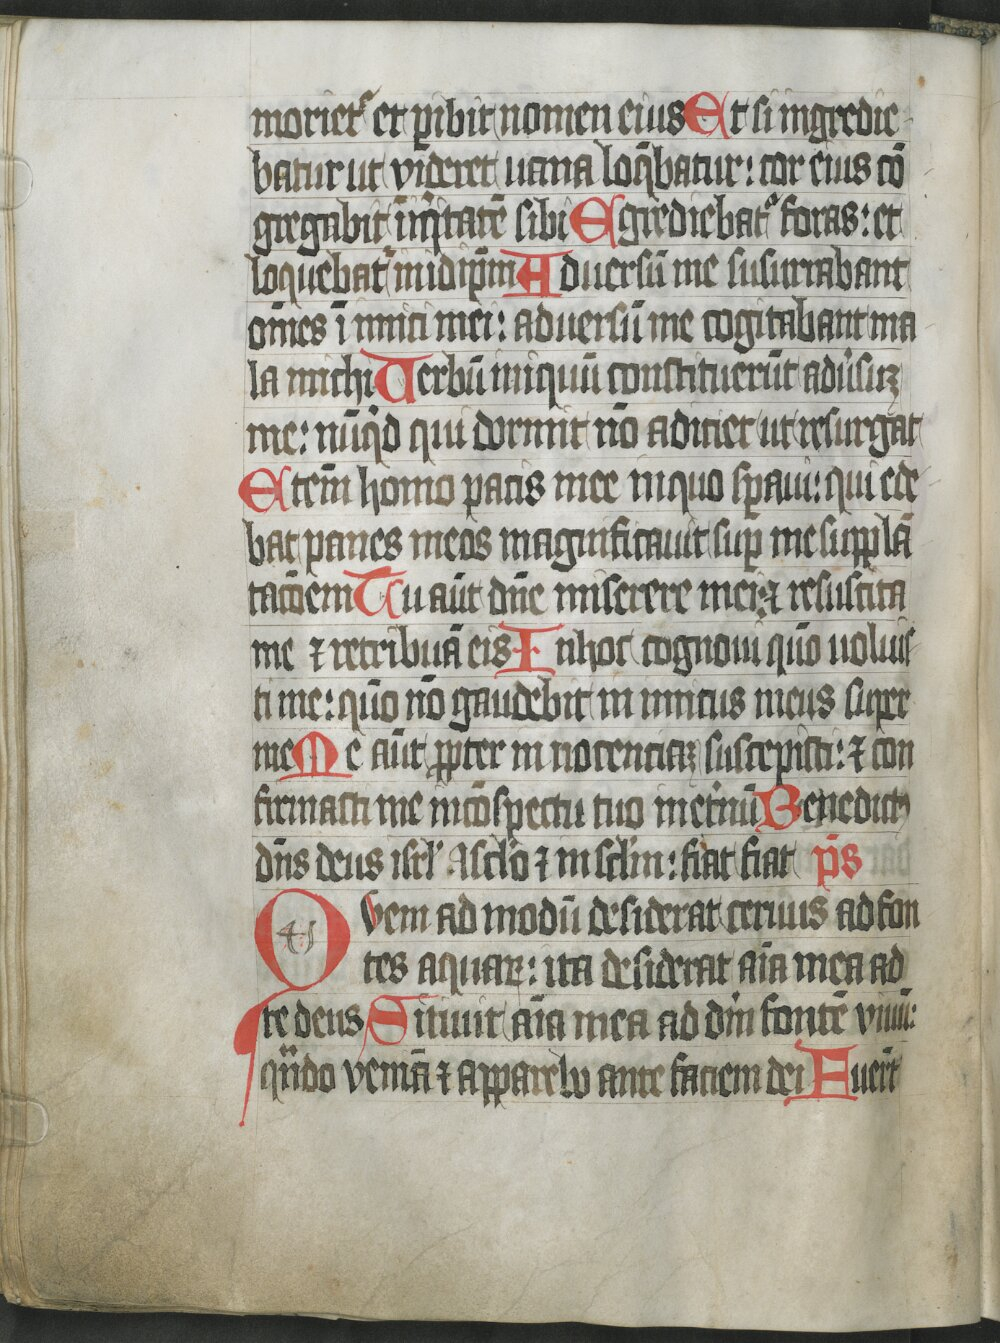 morietr et ꝑibit nomen eius Et si ingredie
batur ut videret uana loq̄batur: cor eius cō
gregabit īiqͥtatē sibi Egrediebatr foras: et
loquebatr in idip̄m Aduersū me susurrabant
om̄es īnimici mei: aduersū me cogitabant ma
la michi Uerbū iniquū constituerūt adūsuꝫ
me: nūqͥd qui dormit nō adiciet ut resurgat
Etem̄ homo pacis mee in quo sꝑaui: qui ede
bat panes meos magnificauit suꝑ me supplā
tac̄oem Tu aūt dn̄e miserere mei: ⁊ resuscita
me ⁊ retribuā eis In hoc cognoui qūo uoluis
ti me: qūo nō gaudebit inimicus meus super
me Me aūt ꝓpter innocenciaꝫ suscepisti: ⁊ con
firmasti me in cōspectu tuo in et̄nū Benedictꝰ
dn̄s deus isrl̄ A scl̄o ⁊ in scl̄m: fiat fiat p̄s
Quem ad modū desiderat ceruus ad fon
41
tes aquaꝝ: ita desiderat aīa mea ad
te deus Sitiuit aīa mea ad dm̄ fontē viuū:
qn̄do veniā ⁊ apparebo ante faciem dei Fuer̄t